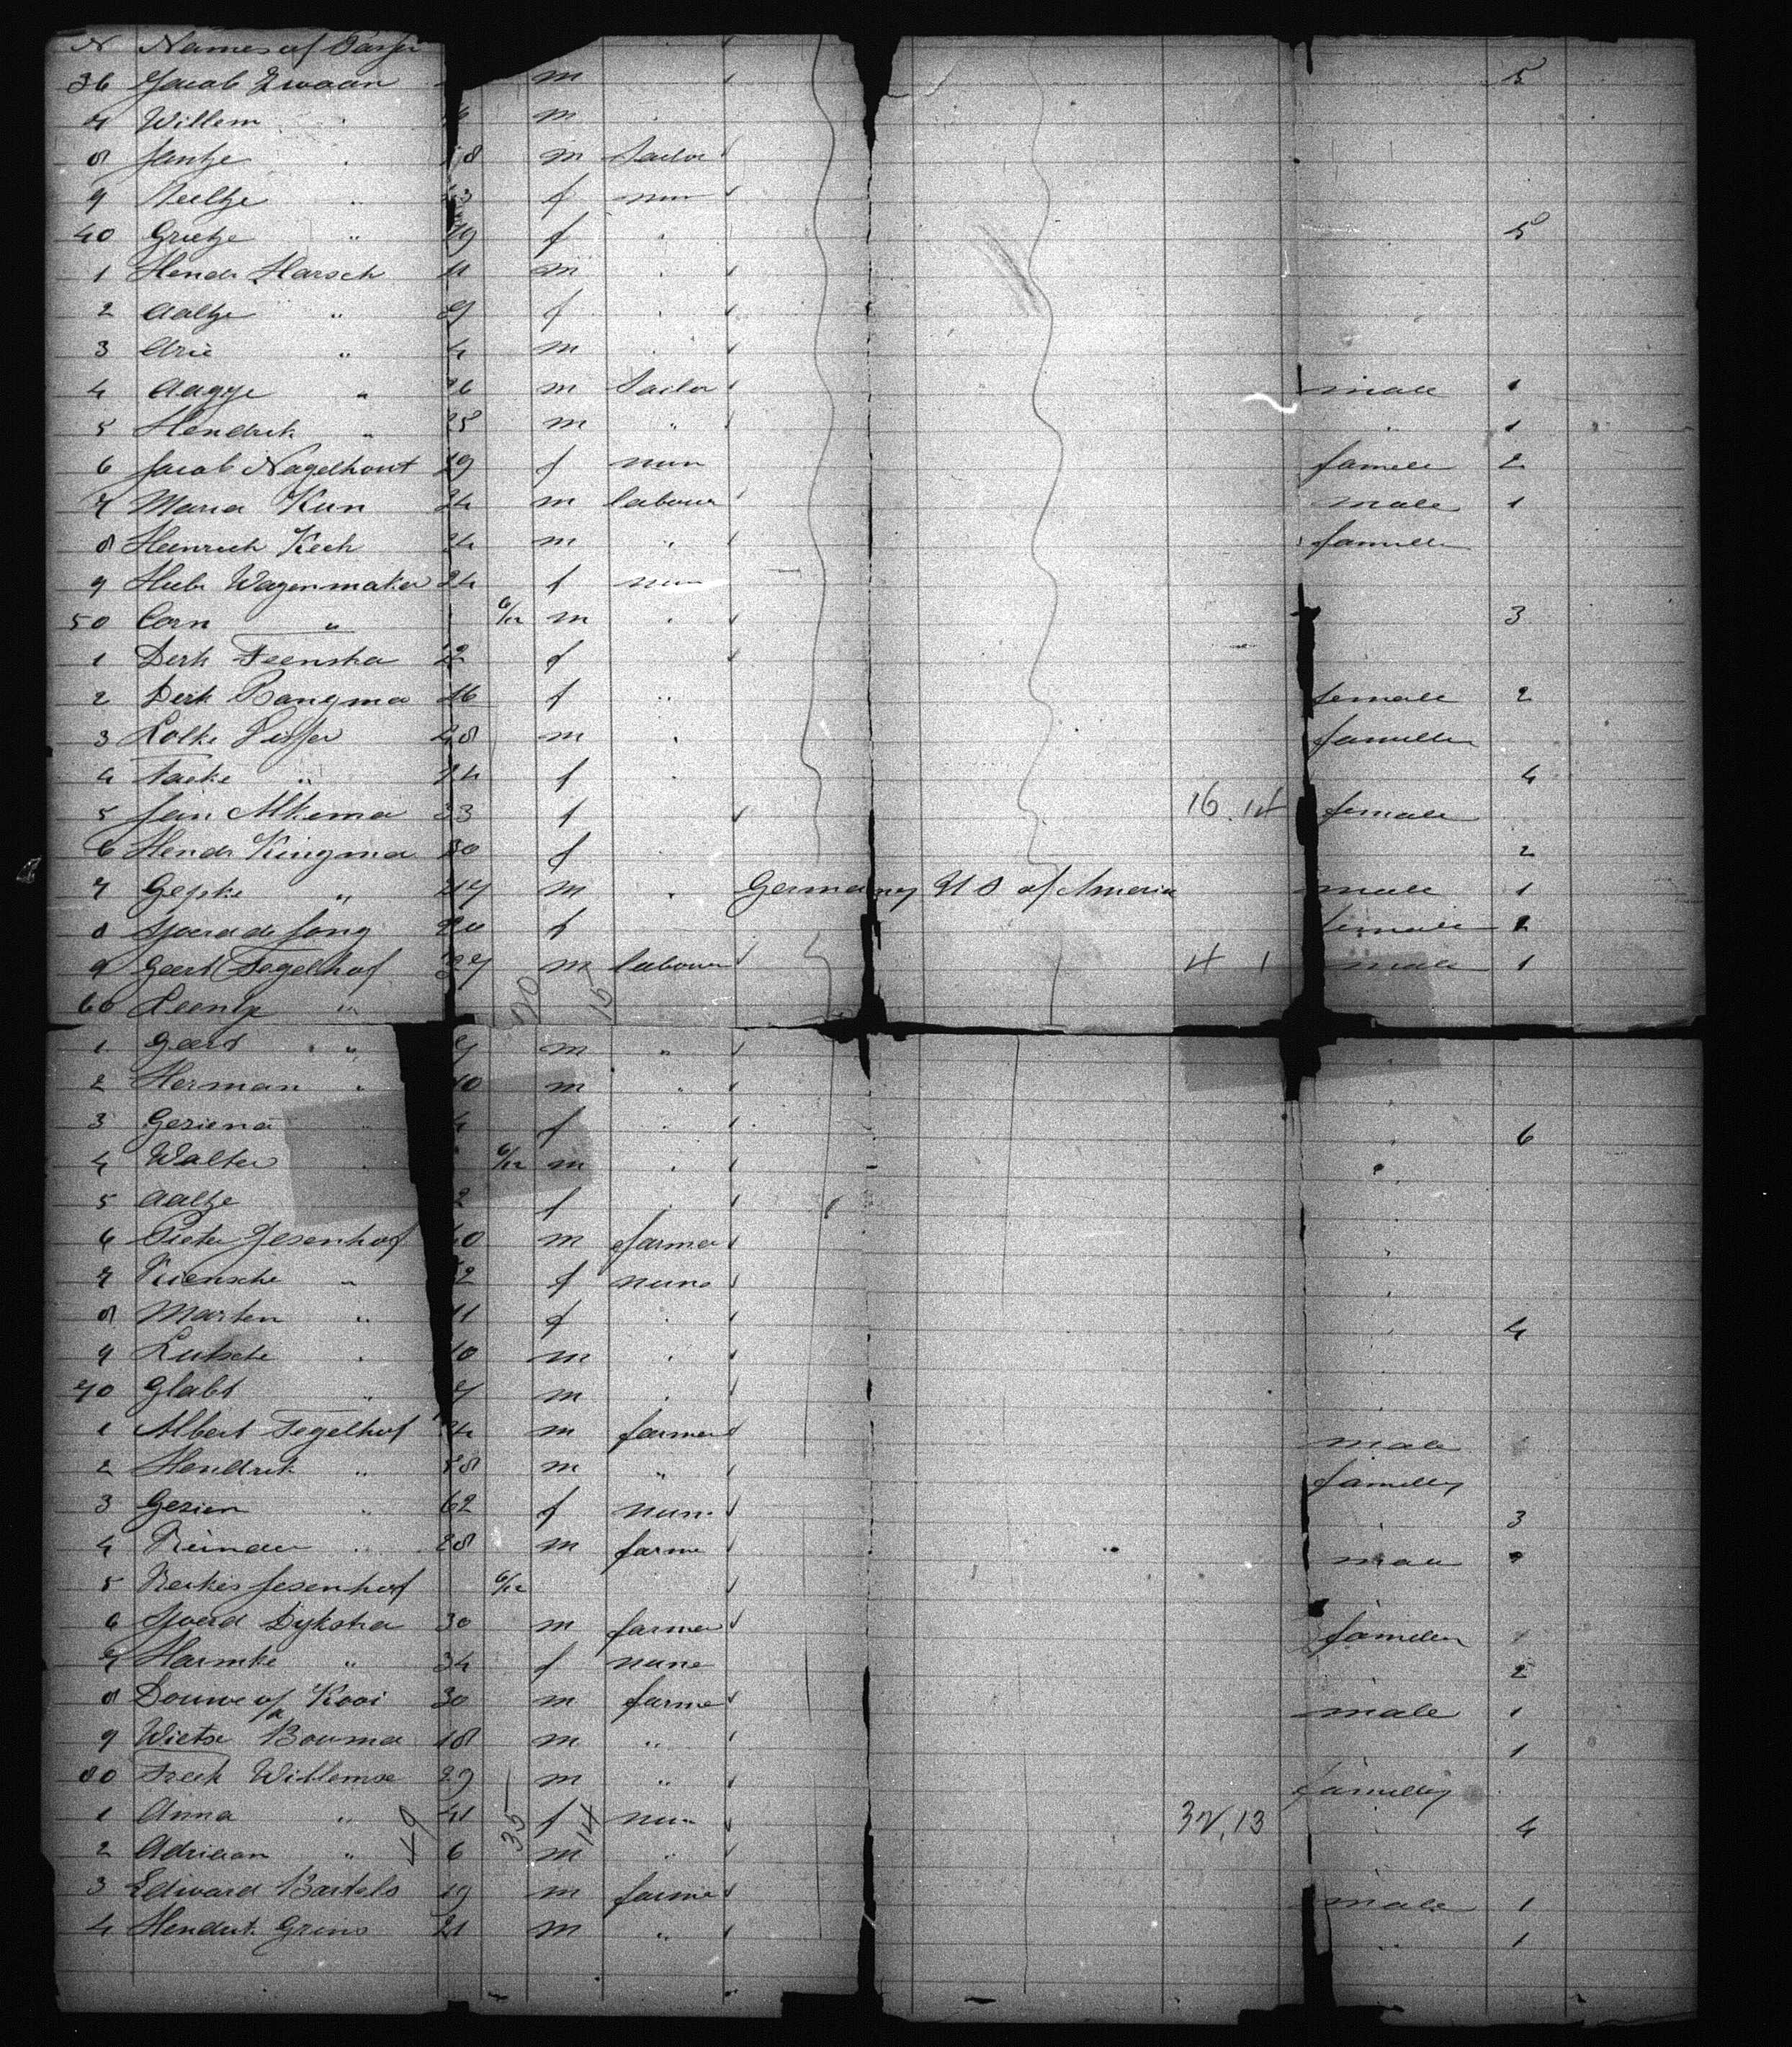 N Names of Passen
36 Jacob Zwaan m 5
7 Willem " m "
8 Jantje " 18 m Sailor
9 Neeltje " f nun
40 Grietje " 19 f " 5
1 Hendr Harsch 11 m "
2 Aaltje " 9 f "
3 Arie " 4 m "
4 Aagye " 26 m Sailor male 1
5 Hendrik " 25 m " " 1
6 Jacob Nagelhout 29 f nun famele 2
7 Maria Kun 34 m labour male 1
8 Heinrich Kech 34 m " famille
9 Huib Wagenmaker 24 f nun
50 Corn " 6/12 m " 3
1 Derk Feenstra 22 f
2 Derk Bangma 16 f " female 2
3 Lolke Visser 48 m " famille
4 Naeke " 24 f " 4
5 Jan Alkema 33 f 16.14 female
6 Hendr Kingma 30 f " 2
7 Gepke " 27 m " Germany U S of America male 1
8 Sjoerd de Jong 20 f female 1
9 Geert Tegelhof 37 m labour 4 1 male 1
60 Leentje " 20 15
1 Geert " 7 m "
2 Herman " 10 m "
3 Geziena " 4 f " 6
4 Walter " 6/12 m "
5 Aaltje 2 f "
6 Pieter Jesenhof 40 m farmer
7 Triensche " 32 f nune
8 Marten " 11 f " 4
9 Lutsche " 10 m "
70 Glabt " 7 m "
1 Albert Tegelhof 34 m farmer male
2 Hendrik " 58 m " famelly
3 Gezien " 62 f nun 3
4 Reinder " 28 m farme male
5 Reikes Jesenhof 6/12
6 Sjoerd Dykstra 30 m farmer famelen
7 Harmke " 34 f nune 2
8 Douwe v/a Kooi 30 m farme male 1
9 Wietse Bouma 18 m " 1
80 Freek Willemse 29 m " famelly
1 Anna " 41 f nun 32,13 " 4
2 Adriaan " 49 6 35 m 14 "
3 Edward Bartels 19 m farme male 1
4 Hendrik Grins 21 m " " 1